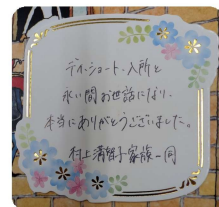 デイ・ショート・入所と
永い間お世話になり、
本当にありがとうございました。
村上満智子家族一同